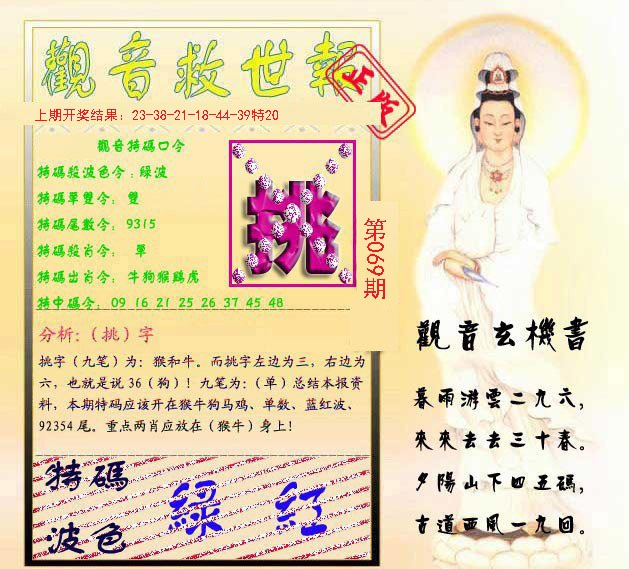 觀音救世報
正版
上期开奖结果：23-38-21-18-44-39特20
觀音特碼口令
特碼殺波色令：绿波
特碼單雙令： 雙
特碼尾數令：9315
特碼殺肖令： 單
特碼出肖令：牛狗猴鷄虎
特中碼令：09 16 21 25 26 37 45 48
挑
第069期
分析:（挑）字
挑字（九笔）为：猴和牛。而挑字左边为三，右边为
六，也就是说36（狗）！九笔为：（单）总结本报资
料，本期特码应该开在猴牛狗马鸡、单数、蓝红波、
92354尾。重点两肖应放在（猴牛）身上！
特碼
波色
綠 紅
觀音玄機書
暮雨游雲二九六，
來來去去三十春。
夕陽山下四五碼，
古道西風一九回。